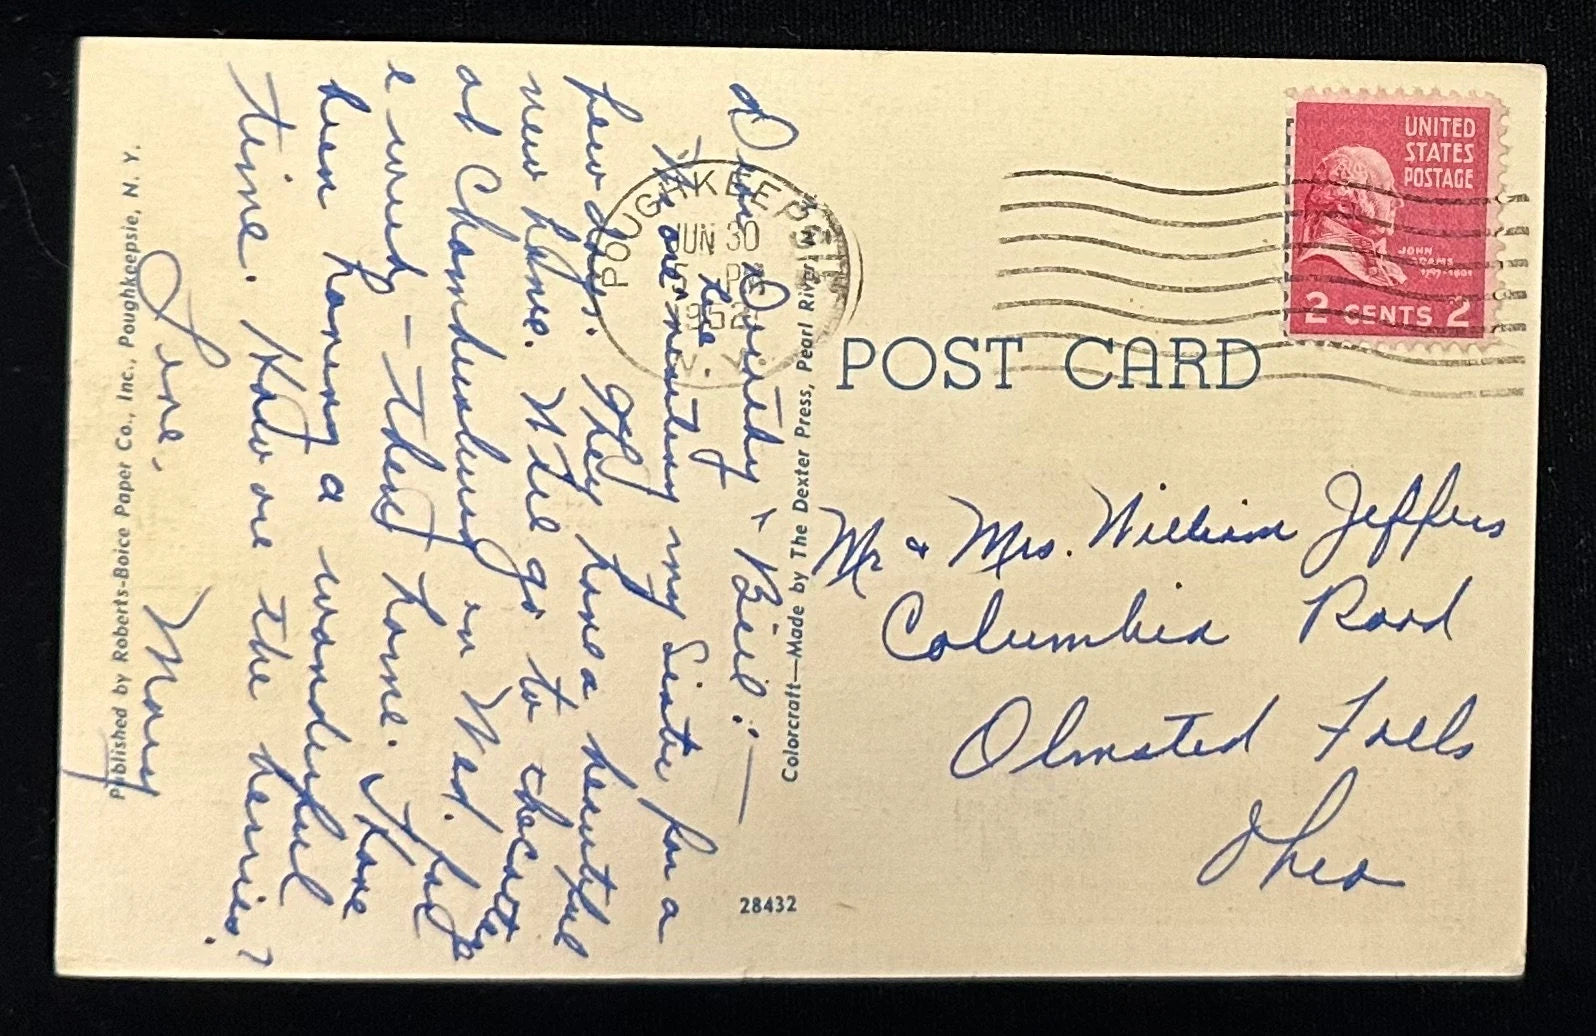 Dear Dorothy + Bill: —
We are the meeting my Sister for a
few days. They have a beautiful
new home. Will go to the cottage
at Chambersburg on Wed. for
a week — then home. Have
been having a wonderful
time. How are the berries?
Love,
Mary
Published by Roberts-Boice Paper Co., Inc., Poughkeepsie, N. Y.
Colorcraft—Made by The Dexter Press, Pearl River, N. Y.
28432
POUGHKEEPSIE
JUN 30
PM
1952
N. Y.
UNITED
STATES
POSTAGE
JOHN
ADAMS
1797-1801
2 CENTS 2
POST CARD
Mr + Mrs. William Jeffers
Columbia Road
Olmsted Falls
Ohio